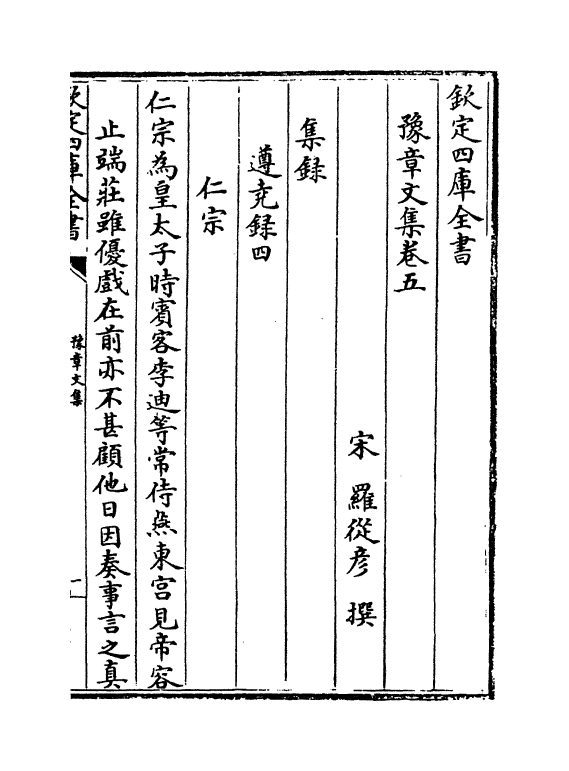 欽定四庫全書
豫章文集卷五
宋 羅從彦 撰
集録
遵堯録四
仁宗
仁宗為皇太子時賓客李迪等常侍燕東宫見帝容
止端莊雖優戲在前亦不甚顧他日因奏事言之真
欽定四庫全書
豫章文集
一